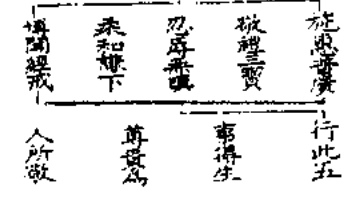 施恩普廣
敬禮三寶
忍辱無瞋
柔和謙下
博聞經戒
行此五
事得生
尊貴為
人所敬